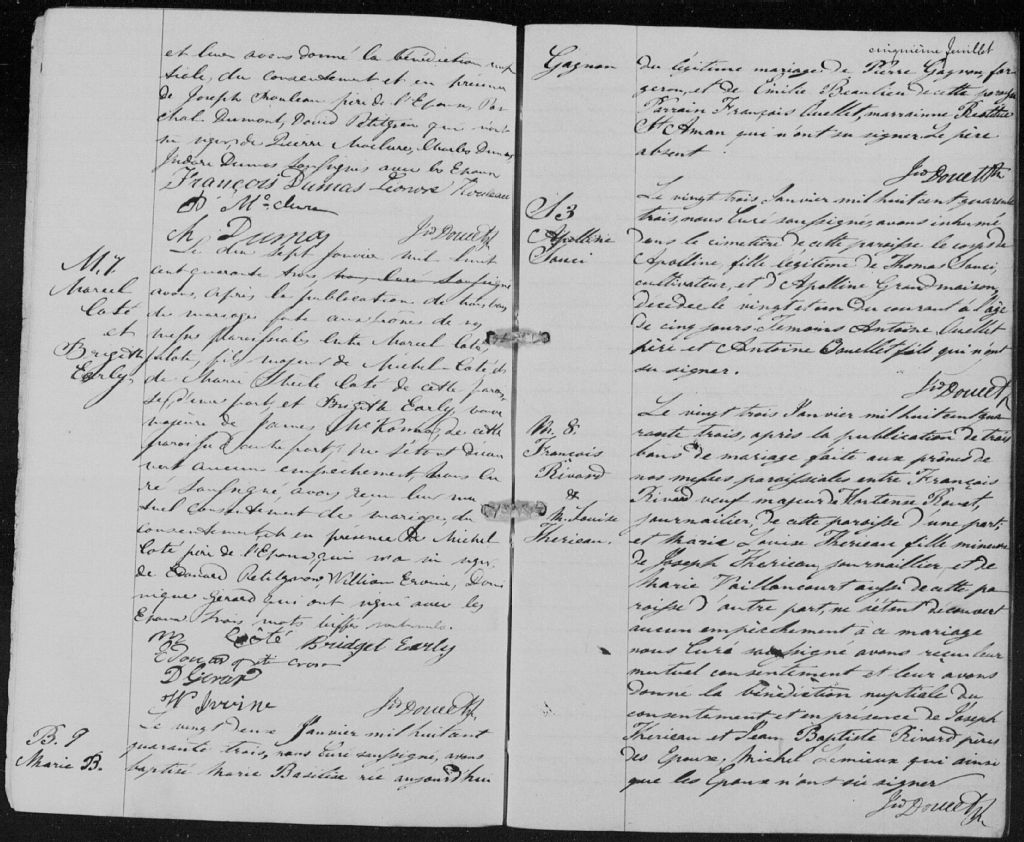 et leur avons donné la bénédiction nup
tiale, du consentement et en présence
de Joseph Rouleau père de l'Epouse, Pas
chal Dumont, David Petitgrew qui n'ont
su signer, de Pierre McClure, Charles Dumas,
Isidore Dumas Soussignés avec les Epoux
François Dumas Leonore Rouleau
P. McClure
Ch Dumas Jos Doucet Ptre
M. 7
Marcel
Coté
et
Brigitte
Early
Le dix sept janvier mil huit
cent quarante trois, nous curé soussigné
avons, après la publication de trois bans
de mariage faite aux prônes de nos
messes paroissiales entre Marcel Coté,
pilote, fils majeur de Michel Coté et
de Marie Coté de cette parois
se d'une part, et Brigitte Early, veuve
majeure de James McKenna, de cette
paroisse d'autre part, ne s'étant décou
vert aucun empêchement, nous cu
ré soussigné, avons reçu leur mu
tuel consentement de mariage, du
consentement et en présence de Michel
Coté père de l'Epoux qui n'a su signer,
de Edouard Petitgrew William Ervine, Domi
nique Gerard qui ont signé avec les
Epoux trois mots biffés nuls.
M Coté Bridget Early
Edouard
D Gerard
W Irvine Jos Doucet Ptre
B. 9
Marie B.
Le vingt deux Janvier mil huit cent
quarante trois, nous Curé soussigné, avons
baptisé Marie Basilisse née aujourd'hui
cinquième feuillet
Gagnon
du légitime mariage de Pierre Gagnon, for
geron, et de Emilie Beaulieu de cette paroisse
Parrain François Ouellet, marrainne
St Aman qui n'ont su signer. Le père
absent.
Jos Doucet Ptre
S 3
Apolline
Souci
Le vingt trois Janvier mil huit cent quarante
trois, nous Curé soussigné, avons inhumé
dans le cimetière de cette paroisse le corps de
Apolline, fille légitime de Thomas Souci,
cultivateur, et d'Apolline Grandmaison,
décédée le vingt et un du courant à l'âge
de cinq jours. Témoins Antoine Ouellet
père et Antoine Ouellet fils qui n'ont
su signer.
Jos Doucet Ptre
M. 8.
François
Rivard
&
M. Louise
Therieau.
Le vingt trois Janvier mil huit cent qua
rante trois, après la publication de trois
bans de mariage faite aux prônes de
nos messes paroissiales entre François
Rivard veuf majeur d'Hortense
journailier, de cette paroisse d'une part,
et Marie Louise Therieau fille mineure
de Joseph Therieau, journailier, et de
Marie Vaillancourt aussi de cette pa
roisse d'autre part, ne s'étant découvert
aucun empêchement à ce mariage
nous Curé soussigné avons reçu leur
mutuel consentement et leur avons
donné la bénédiction nuptiale du
consentement et en présence de Joseph
Therieau et Jean Baptiste Rivard pères
des Epoux, Michel Lemieux qui ainsi
que les Epoux n'ont su signer
Jos Doucet Ptre